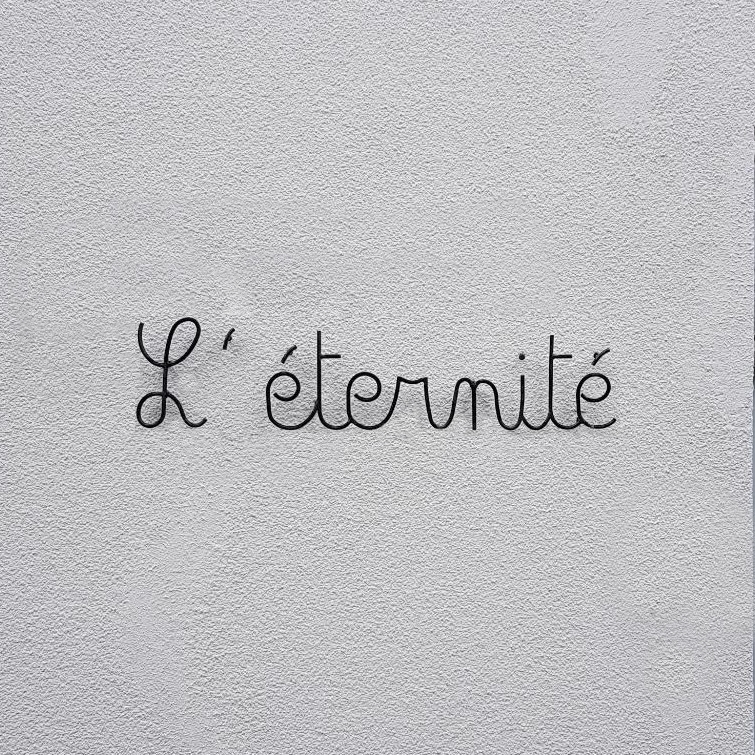 L'éternité